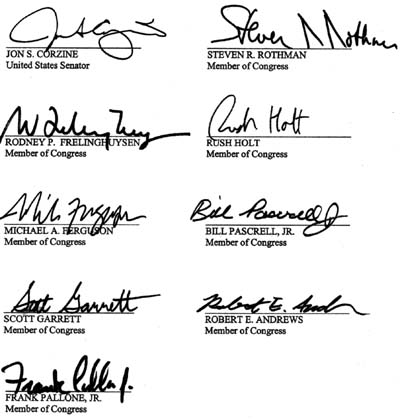 Steven R Rothman
JON S. CORZINE
United States Senator
STEVEN R. ROTHMAN
Member of Congress
Rush Holt
RODNEY P. FRELINGHUYSEN
Member of Congress
RUSH HOLT
Member of Congress
Mike Ferguson
Bill Pascrell Jr
MICHAEL A. FERGUSON
Member of Congress
BILL PASCRELL, JR.
Member of Congress
Scott Garrett
Robert E. Andrews
SCOTT GARRETT
Member of Congress
ROBERT E. ANDREWS
Member of Congress
Frank Pallone Jr.
FRANK PALLONE, JR.
Member of Congress